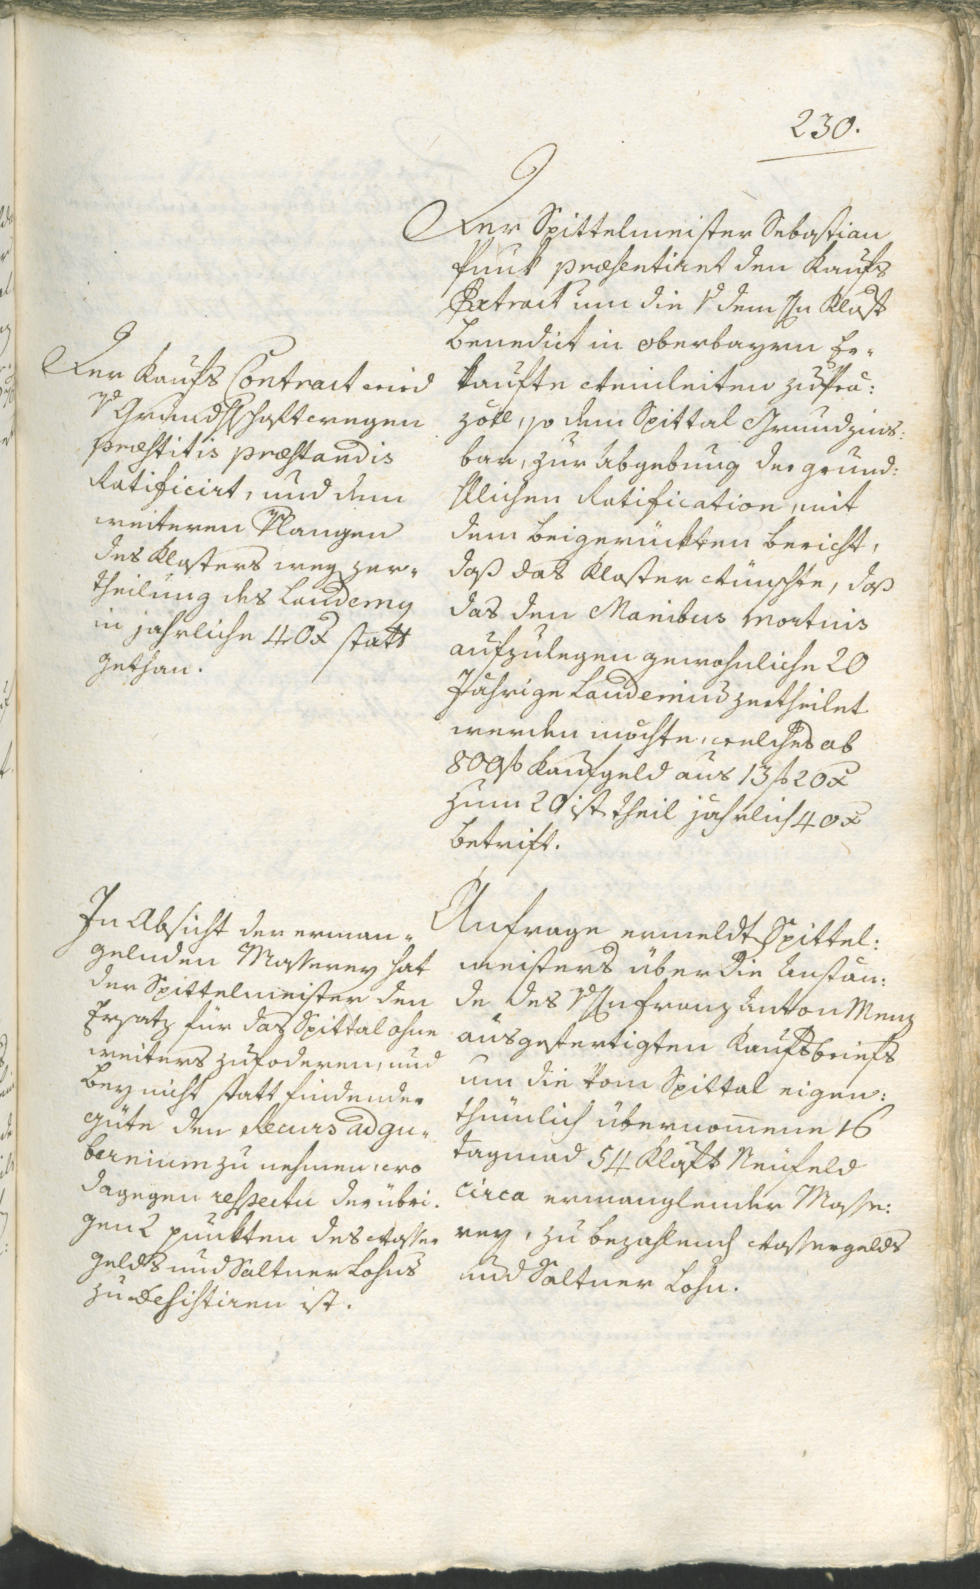 230.
Der Spittelmeister Sebastian
Funk præsentiret den Kaufs
Extract um die dem Klost
Benedict in oberbayrn Er-
kaufte Weinleiten zu
so dem Spittal Grundzins:
bar, zur Abgebung der grund:
Ratification, mit
dem beigerückten Bericht,
daß das Kloster wünschte, daß
das den Manibus mortuis
aufzulegen gewohnliche 20
Jährige Laudemium zertheilet
werden möchte, welches ab
800 f Kaufgeld aus 13 f 20 x
zum 20ist. theil jährlich 40 x
betrift.
Der Kaufs Contract wird
Grundhschaftwegen
præstitis præstandis
Ratificirt, und dem
weiteren
des Klosters weg. zer-
theilung des Laudemy
in jahrliche 40 x statt
gethan.
Anfrage ermeldt Spittel:
meisters über die Anstän:
de des Franz Anton Menz
ausgefertigten Kaufsbriefs
um die vom Spittal eigen:
thümlich übernomene 16
tagmad 54 Klaft Neüfeld
circa ermanglender Masse:
rey, zu bezahlend Wassergelds
und Saltner Lohn.
In Absicht der erman-
gelnden Masserey hat
der Spittelmeister den
Ersatz für das Spittal ohne
weiters zufoderen, und
bey nicht statt findender
güte den Recurs ad gu-
bernium zu nehmen, wo
dagegen respectu der übri-
gen 2 punkten des Wasser
gelds und Saltner Lohns
zu desistiren ist.